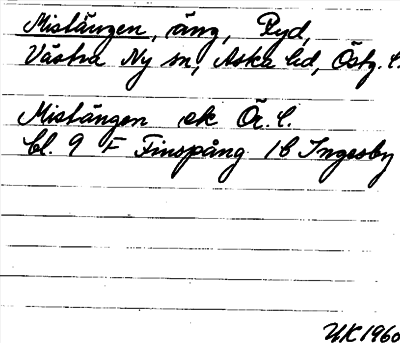 Mistängen, äng, Ryd,
Västra Ny sn, Aska hd, Östg. l.
Mistängen ek Ör. l.
bl. 9 F Finspång 1b Ingesby
UK 1960